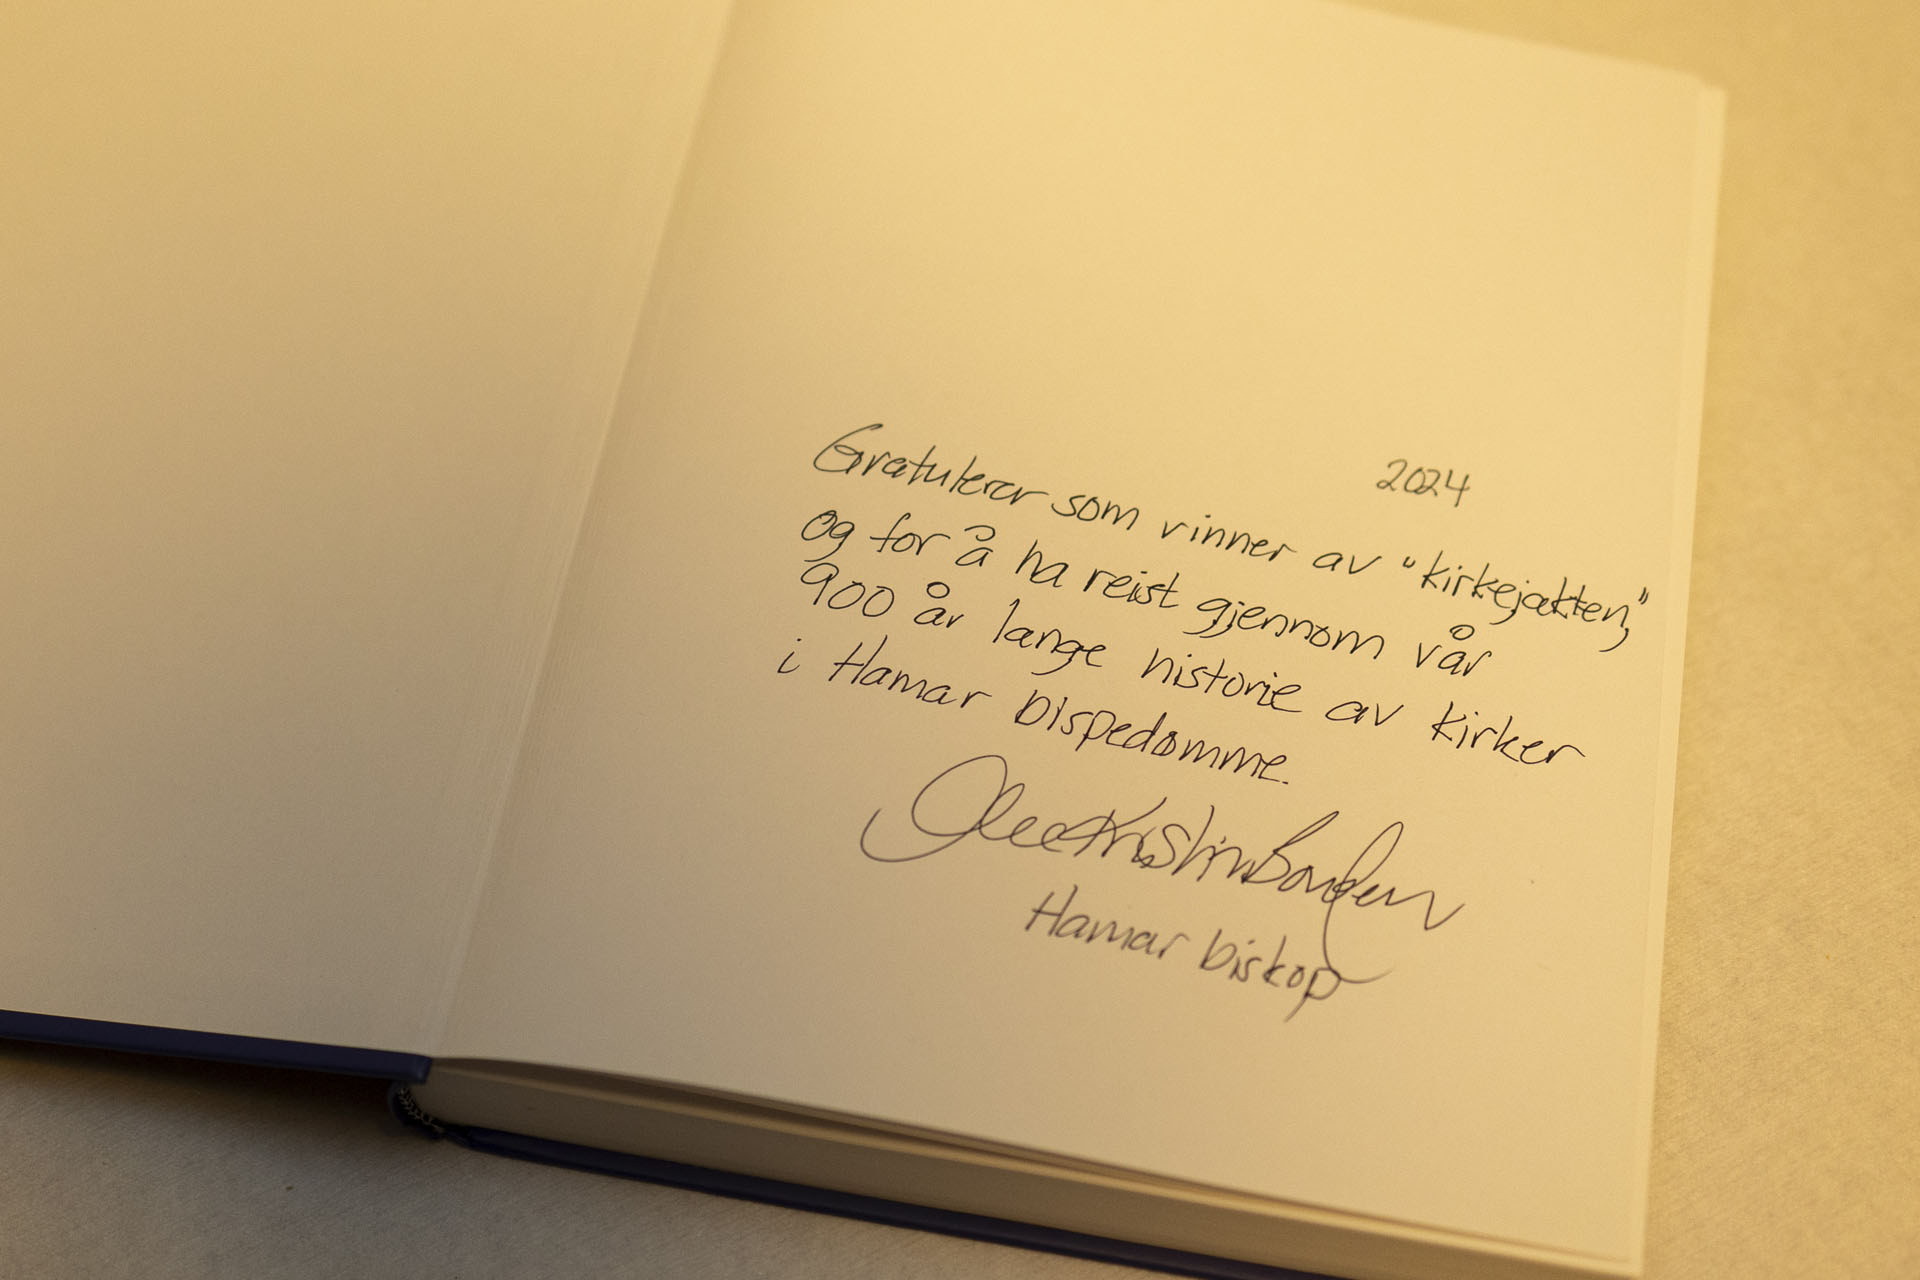 2024
Gratulerer som vinner av "kirkejakten,"
og for å ha reist gjennom vår
900 år lange historie av kirker
i Hamar bispedømme.
Ole Kristian Bonden
Hamar biskop